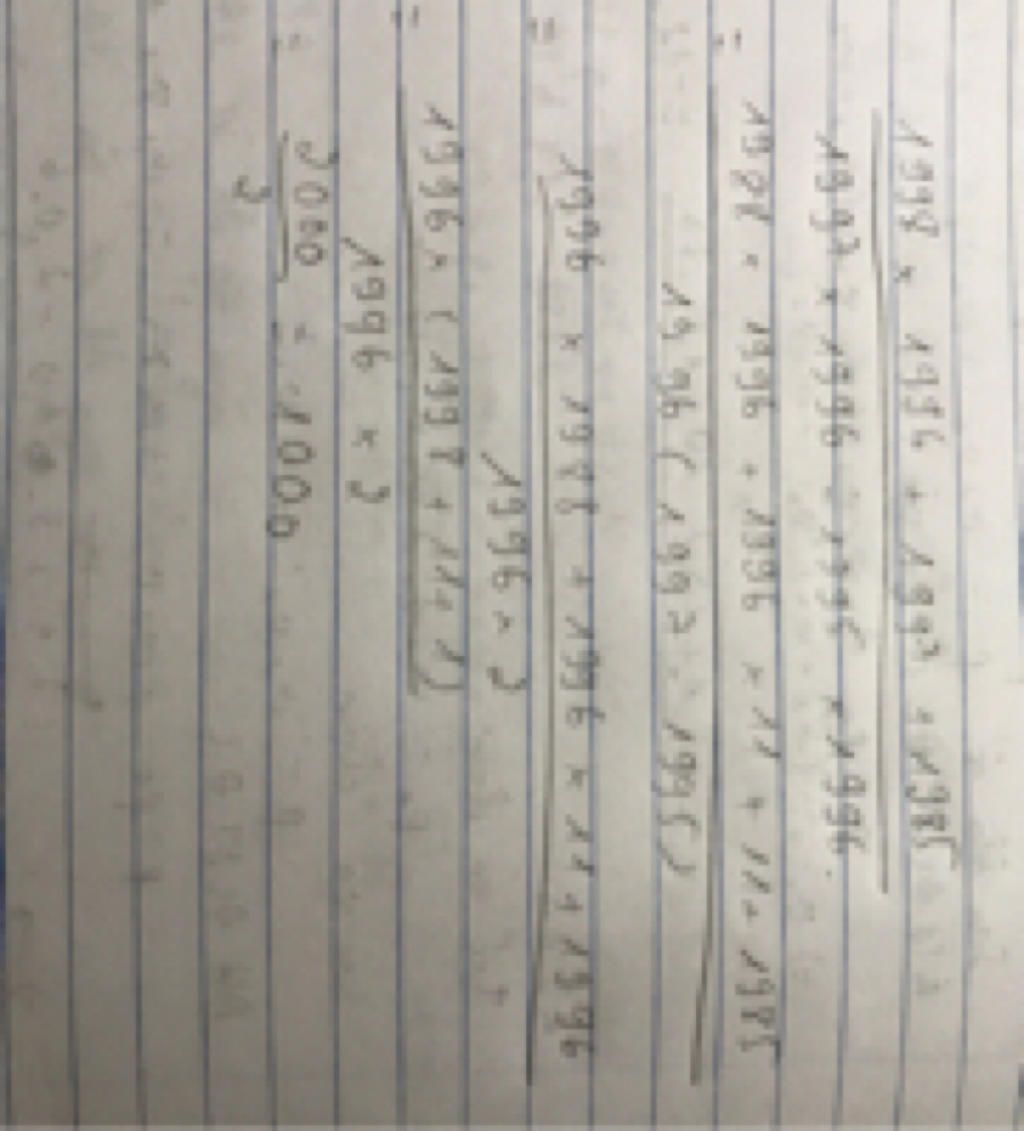 1988 × 1996 + 1997 + 1985
1997 × 1996 - 1995 × 1996
= 1988 × 1996 + 1996 × 11 + 11 + 1985
1996 ( 1997 - 1995 )
= 1996 × 1988 + 1996 × 11 + 1996
1996 × 2
= 1996 × ( 1988 + 11 + 1 )
1996 × 2
= 2000 = 1000
2